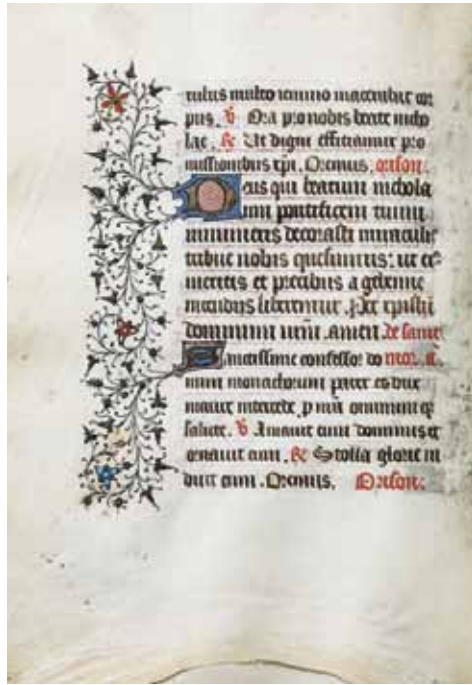 tulus multo ieiuno macerabat cor
pus. V Ora pro nobis beate nicho
lae. R Ut digni efficiamur pro
missionibus xpi. Oremus. orison.
Deus qui beatum nichola
um pontificem tuum
innumeris decorasti miraculis
tribue nobis quesumus: ut eius
meritis et precibus a gehenne
incendiis liberemur. Per xpistū
dominum nrm. amen. De saint
Sanctissime confessor do mor. a.
mini monachorum pater et dux
maure intercede p nrā omnium q3
salute. V Amavit eum dominus et
ornavit eum. R Stolā glorie in
duit eum. Oremus. Orison.